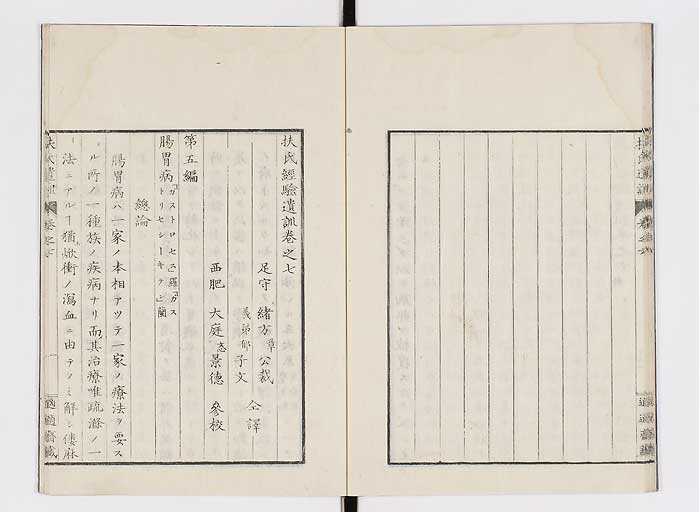 扶氏經驗遺訓卷之七
足守 緒方章公裁
義弟郁子文 仝譯
西肥 大庭忞景德 參校
第五編
腸胃病「ガストロセ」羅「ガス
トリセシーキテ」蘭
總論
腸胃病ハ一家ノ本相アツテ一家ノ療法ヲ要ス
ル所ノ一種族ノ疾病ナリ而其治療唯疏滌ノ一
法ニアルヿ猶焮衝ノ瀉血ニ由テノミ解シ僂麻
扶氏遺訓 卷之七
一
適適齋藏
扶氏遺訓 卷之六
適適齋藏